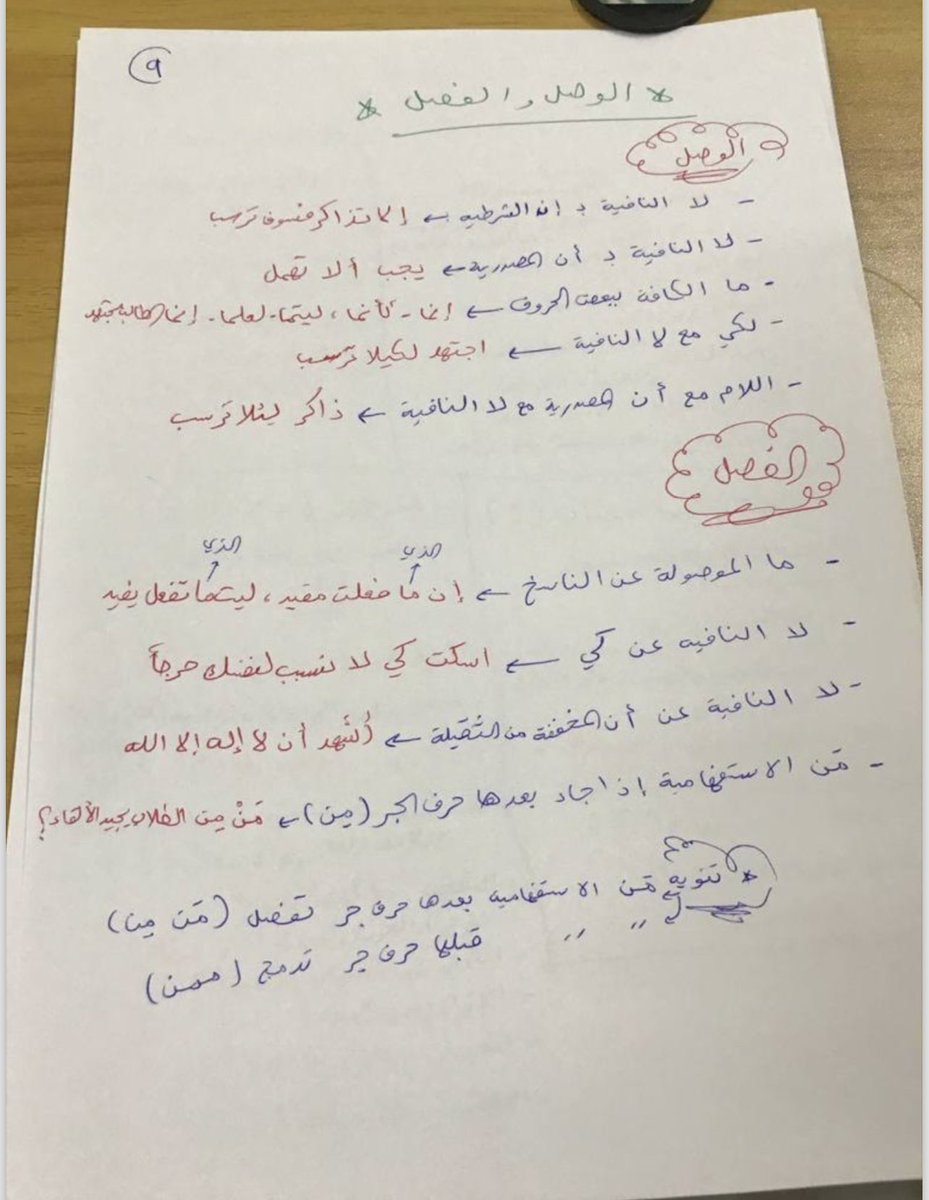 ٩
* الوصل والفصل *
الوصل
- لا النافية بـ إن الشرطيه ← إلا تذاكر فسوف ترسب
- لا النافية بـ أن المصدرية ← يجب ألا تهمل
- ما الكافة ببعض الحروف ← إنما - كأنما، ليتما - لعلما - إنما الطالب مجتهد
- لكي مع لا النافية ← اجتهد لكيلا ترسب
- اللام مع أن المصدرية مع لا النافية ← ذاكر لئلا ترسب
الفصل
الذي الذي
- ما الموصولة عن الناسخ ← إن ما فعلت مفيد، ليت ما تفعل يفيد
- لا النافيه عن كي ← اسكت كي لا تسبب لنفسك حرجاً
- لا النافية عن أن المخففة من الثقيلة ← أشهد أن لا إله إلا الله
- مَن الاستفهامية إذا جاء بعدها حرف الجر (مِن) ← مَنْ مِن الطلاب يجيد الإلقاء؟
* تنويه مَن الاستفهاميه بعدها حرف جر تفصل (مَن مِن)
" " قبلها حرف جر تدمج (ممن)